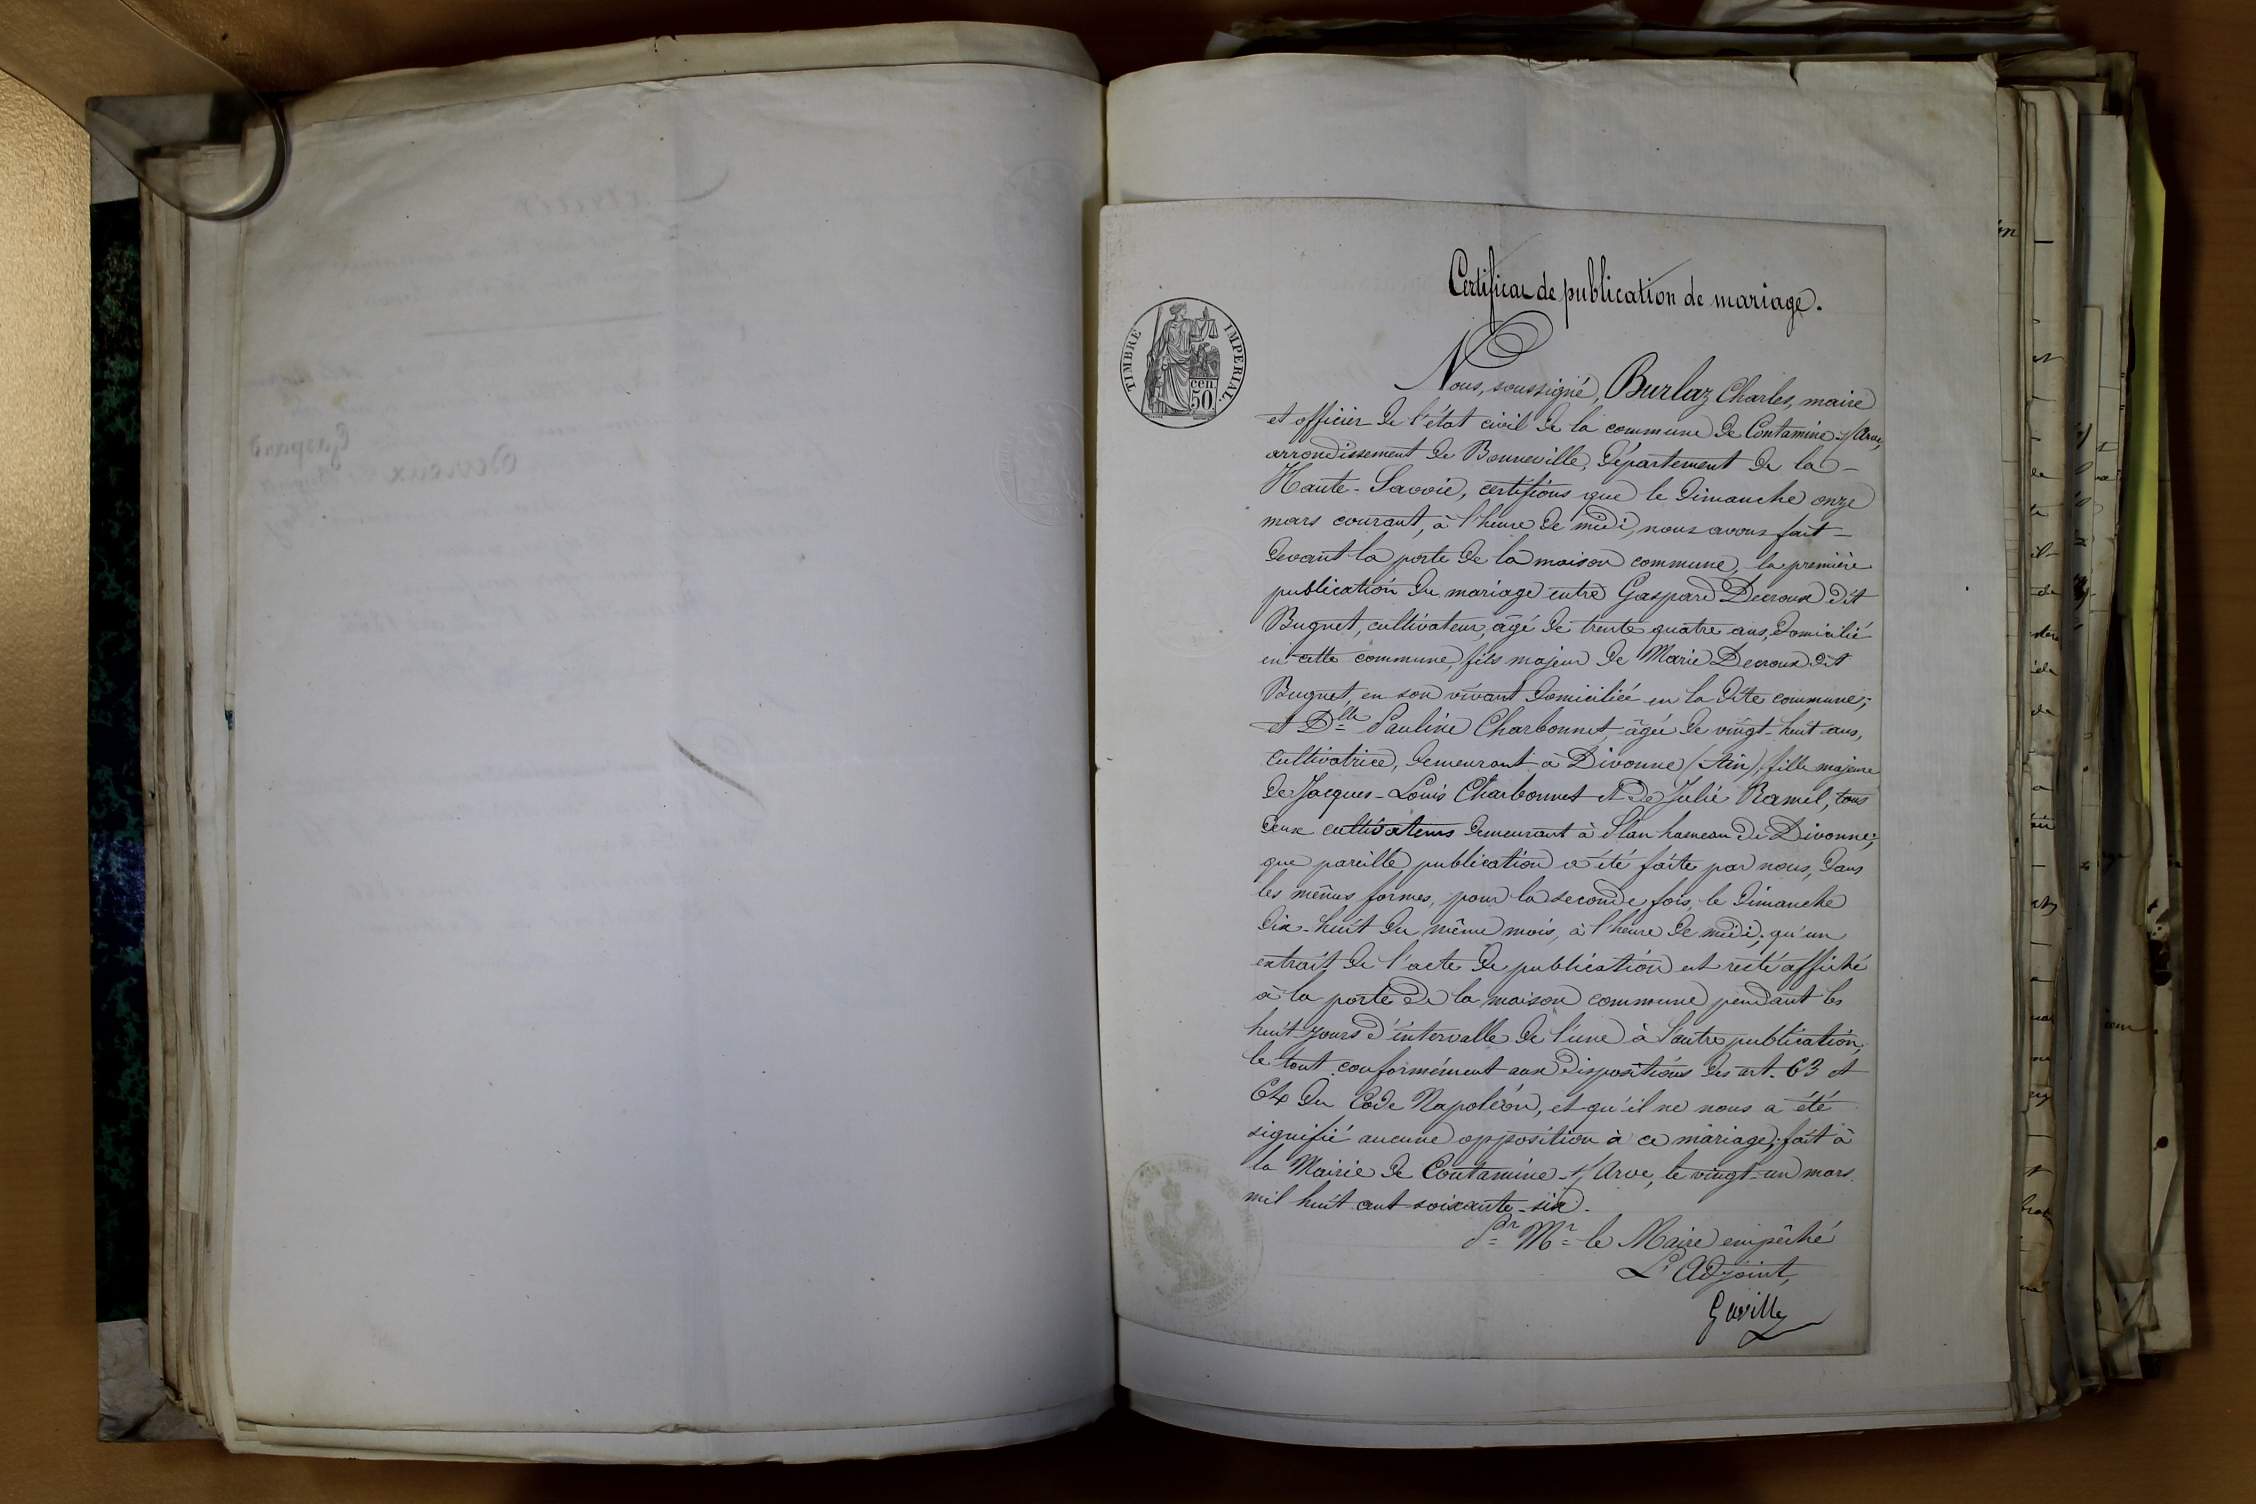 Certificat de publication de mariage.
TIMBRE IMPERIAL.
cen.
50.
Nous, soussigné, Burlaz Charles, maire
et officier de l'état civil de la commune de Contamine s/ Arve,
arrondissement de Bonneville, département de la
Haute-Savoie, certifions que le dimanche onze
mars courant, à l'heure de midi, nous avons fait
devant la porte de la maison commune, la première
publication du mariage entre Gaspard Decroux dit
Bugnet, cultivateur, âgé de trente quatre ans, domicilié
en cette commune, fils majeur de Marie Decroux dit
Bugnet, en son vivant domiciliée en la dite commune;
et Dlle Pauline Charbonnet, âgée de vingt-huit ans,
cultivatrice, demeurant à Divonne (Ain), fille majeure
de Jacques-Louis Charbonnet et de Julie Ramel, tous
deux cultivateurs demeurant à Plan hameau de Divonne;
que pareille publication a été faite par nous, dans
les mêmes formes, pour la seconde fois, le dimanche
dix-huit du même mois, à l'heure de midi; qu'un
extrait de l'acte de publication est resté affiché
à la porte de la maison commune pendant les
huit jours d'intervalle de l'une à l'autre publication,
le tout conformément aux dispositions des art. 63 et
64 du Code Napoléon, et qu'il ne nous a été
signifié aucune opposition à ce mariage; fait à
la Mairie de Contamine s/ Arve, le vingt-un mars
mil huit cent soixante-six.
Pr Mr le Maire empêché
L'Adjoint,